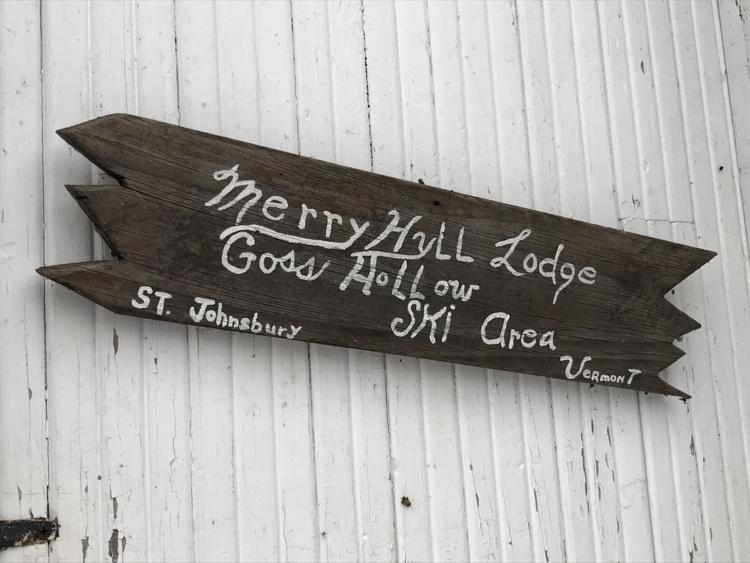 Merry Hyll Lodge
Goss Hollow
Ski Area
St. Johnsbury
Vermont